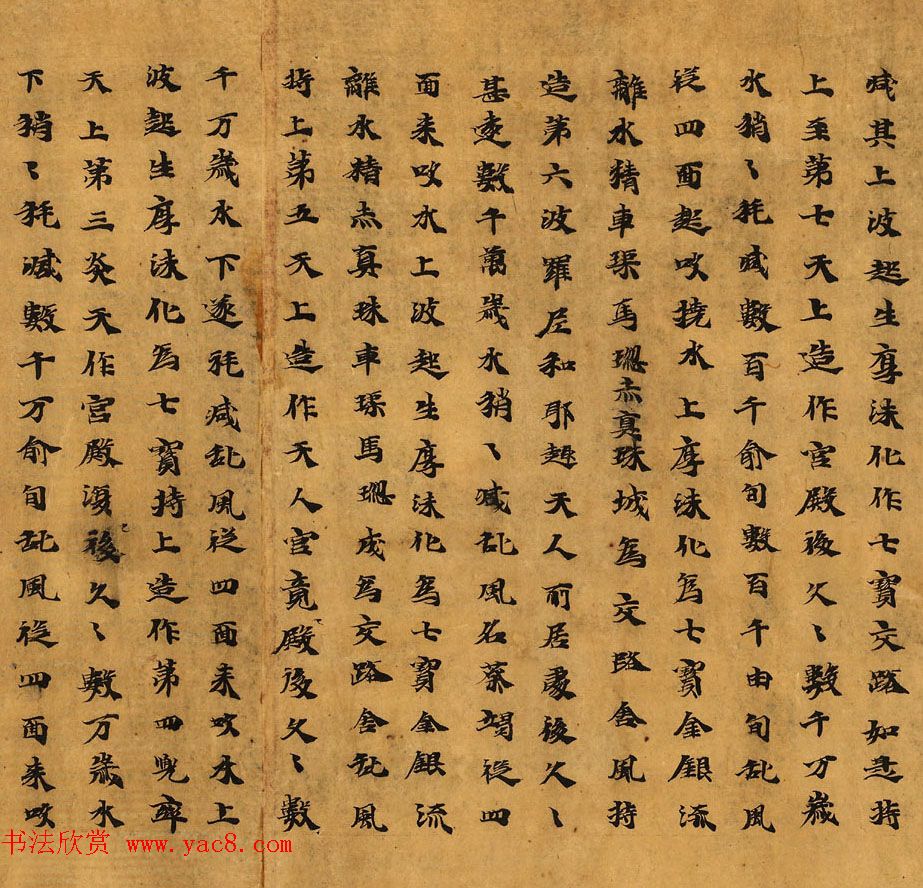 减其上波起生厚沫化作七寳交路如是持
上至第七天上造作宫殿後久〻數千万歲
水稍〻秏减數百千俞旬數百千由旬乱風
從四面起吹撓水上厚沫化為七寳金銀流
離水精車璖馬瑙赤真珠城為交路舍風持
造第六波羅尼和耶越天人所居處後久〻
甚遠數千萬歲水稍〻减乱風名蔡竭從四
面来吹水上波起生厚沫化為七寳金銀流
離水精赤真珠車璖馬瑙成為交路舍乱風
持上第五天上造作天人官竟殿後久〻數
千万歲水下遂秏减乱風從四面来吹水上
波起生厚沫化為七寳持上造作第四兜率
天上第三炎天作宫殿復後久〻數万歲水
下稍〻秏减數千万俞旬乱風從四面来吹
书法欣赏 www.yac8.com